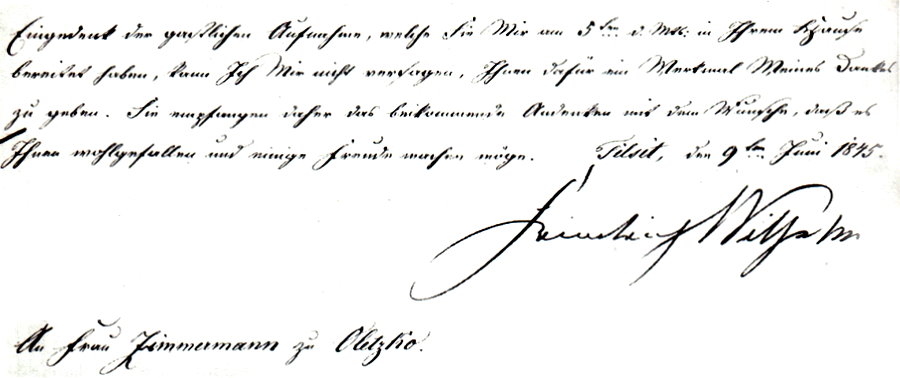 Eingedenk der gastlichen Aufnahme, welche Sie Mir am 5ten d. Mts: in Ihrem Hause
bereitet haben, kann Ich Mir nicht versagen, Ihnen dafür ein Merkmal Meines Dankes
zu geben. Sie empfangen daher das beikommende Andenken mit dem Wunsche, daß es
Ihnen wohlgefallen und einige Freude machen möge. Tilsit, den 9ten Juni 1845.
Friedrich Wilhelm
An Frau Zimmermann zu Oletzko.